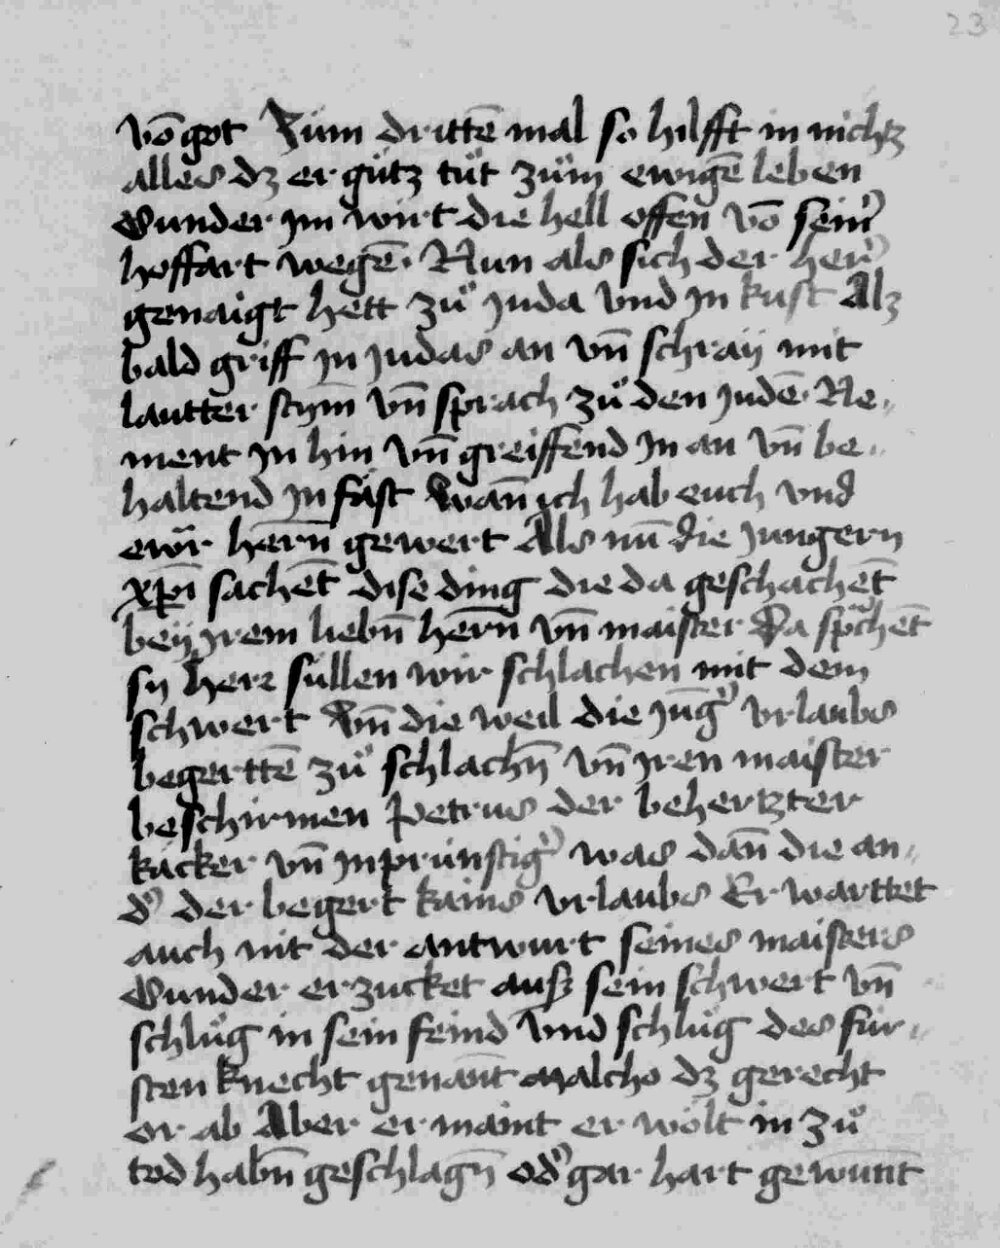 23
võ got Züm drittẽ mal so hilfft in nichtz
alles dz er gütz tüt züm ewigẽ leben
Sunder im wirt die hell offen võ seinr̃
hoffart wegẽ. Nun als sich der herr̃
genaigt hett zů juda vnd jn kust Alz
bald griff jn judas an vñ schraÿ mit
lautter stỹm vñ sprach zů den judẽ. Ne„
ment jn hin vñ greiffend jn an vñ be„
haltend jn fäst wañ ich hab euch vnd
ewr̃ herñ gewert Als nũ die jungern
xp̃i sachẽt dise ding die da geschachẽt
beÿ jrem liebñ herñ vñ maister Da sprchẽt
sy herr süllen wir schlachen mit dem
schwert Vñ die weil die jũg᷑ vrlaubs
begerttẽ zů schlachñ vñ jren maister
beschirmen Petrus der behertzter
käcker vñ jnprünstig᷑ was dañ die an„
d᷑ der begert kains vrlaubs Er warttet
auch nit der antwurt seines maisters
Sunder er zucket ausz sein schwert vñ
schlůg in sein feind Vnd schlůg des für„
sten knecht genãnt malcho dz gerecht
or ab Aber er maint er wölt in zů
tod habñ geschlagñ od᷑ gar hart gewũnt